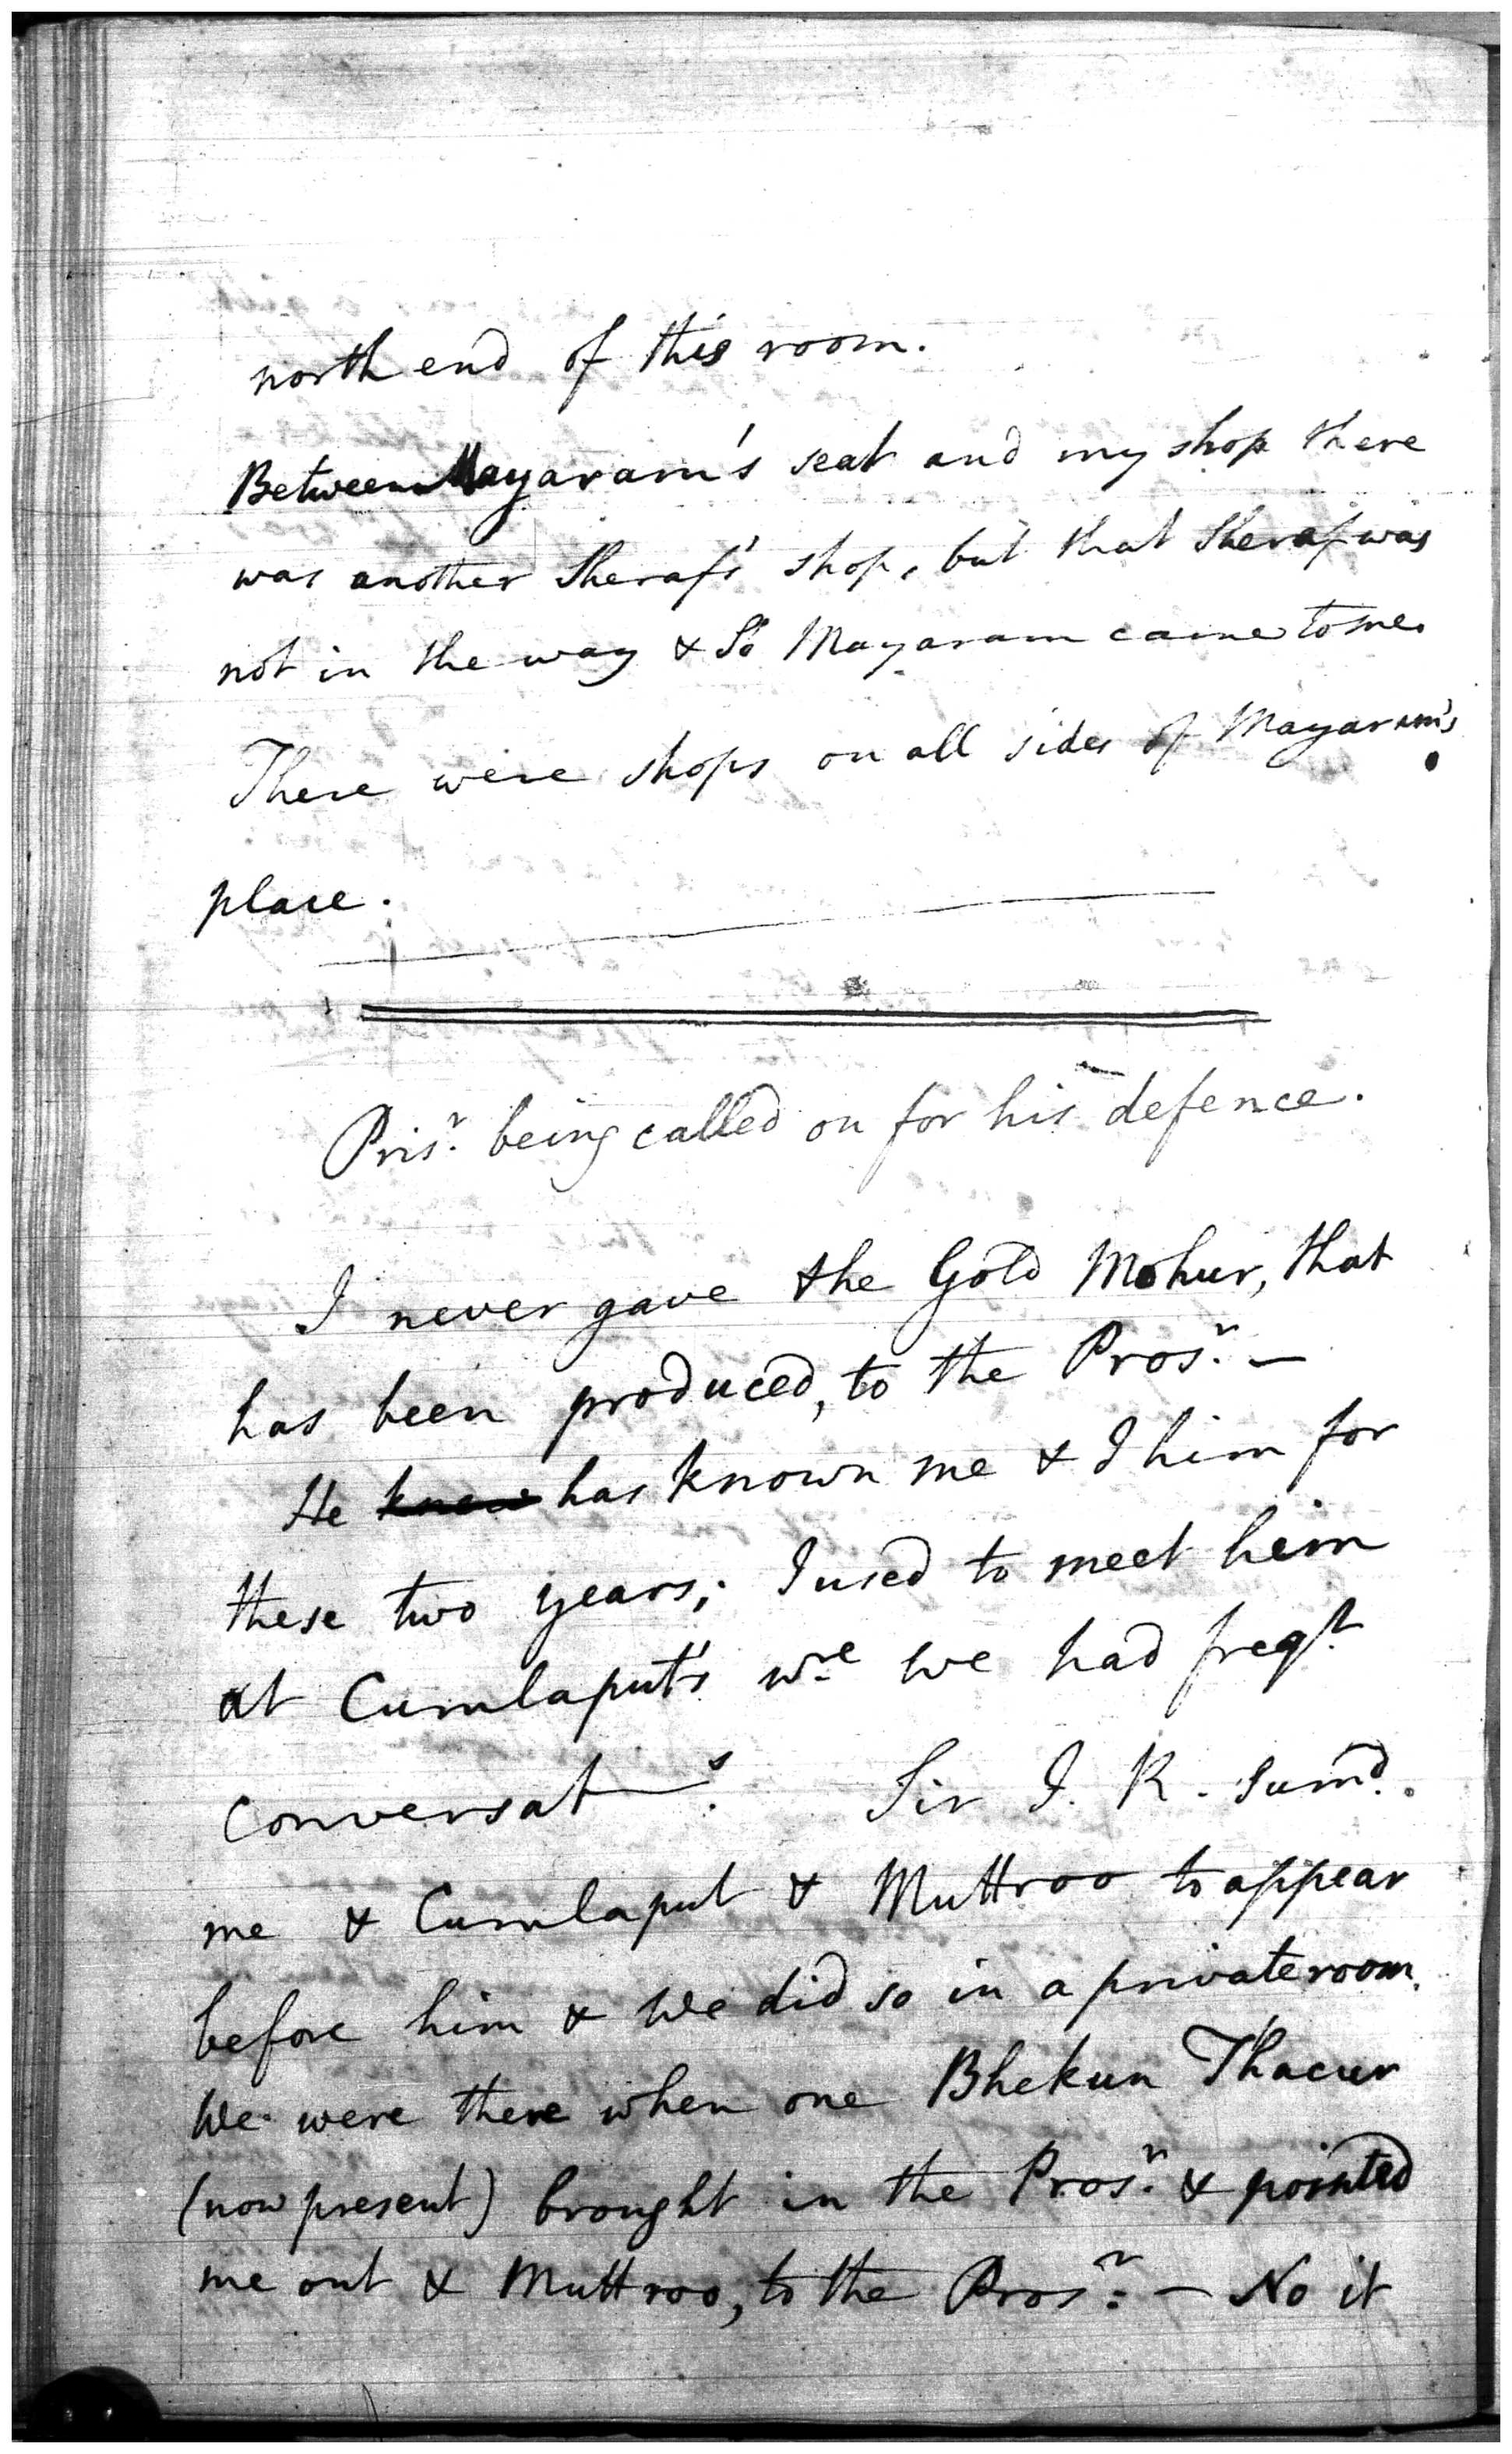 north end of this room.
Between Mayaram's seat and my shop there
was another Sheraf's shop, but that Sheraf was
not in the way & So Mayaram came to me.
There were shops on all sides of Mayaram's
place.
Pris.r being called on for his defence.
I never gave the Gold Mohur, that
has been produced, to the Pros.r —
He knew has known me & I him for
these two years; I used to meet him
at Cumlaput's w.re we had freq.t
Conversat—s. Sir J. R. sum'd.
me & Cumlaput & Muttroo to appear
before him & We did so in a private room.
We were there when one Bhekun Thacur
(now present) brought in the Pros.r & pointed
me out & Muttroo, to the Pros.r — No it